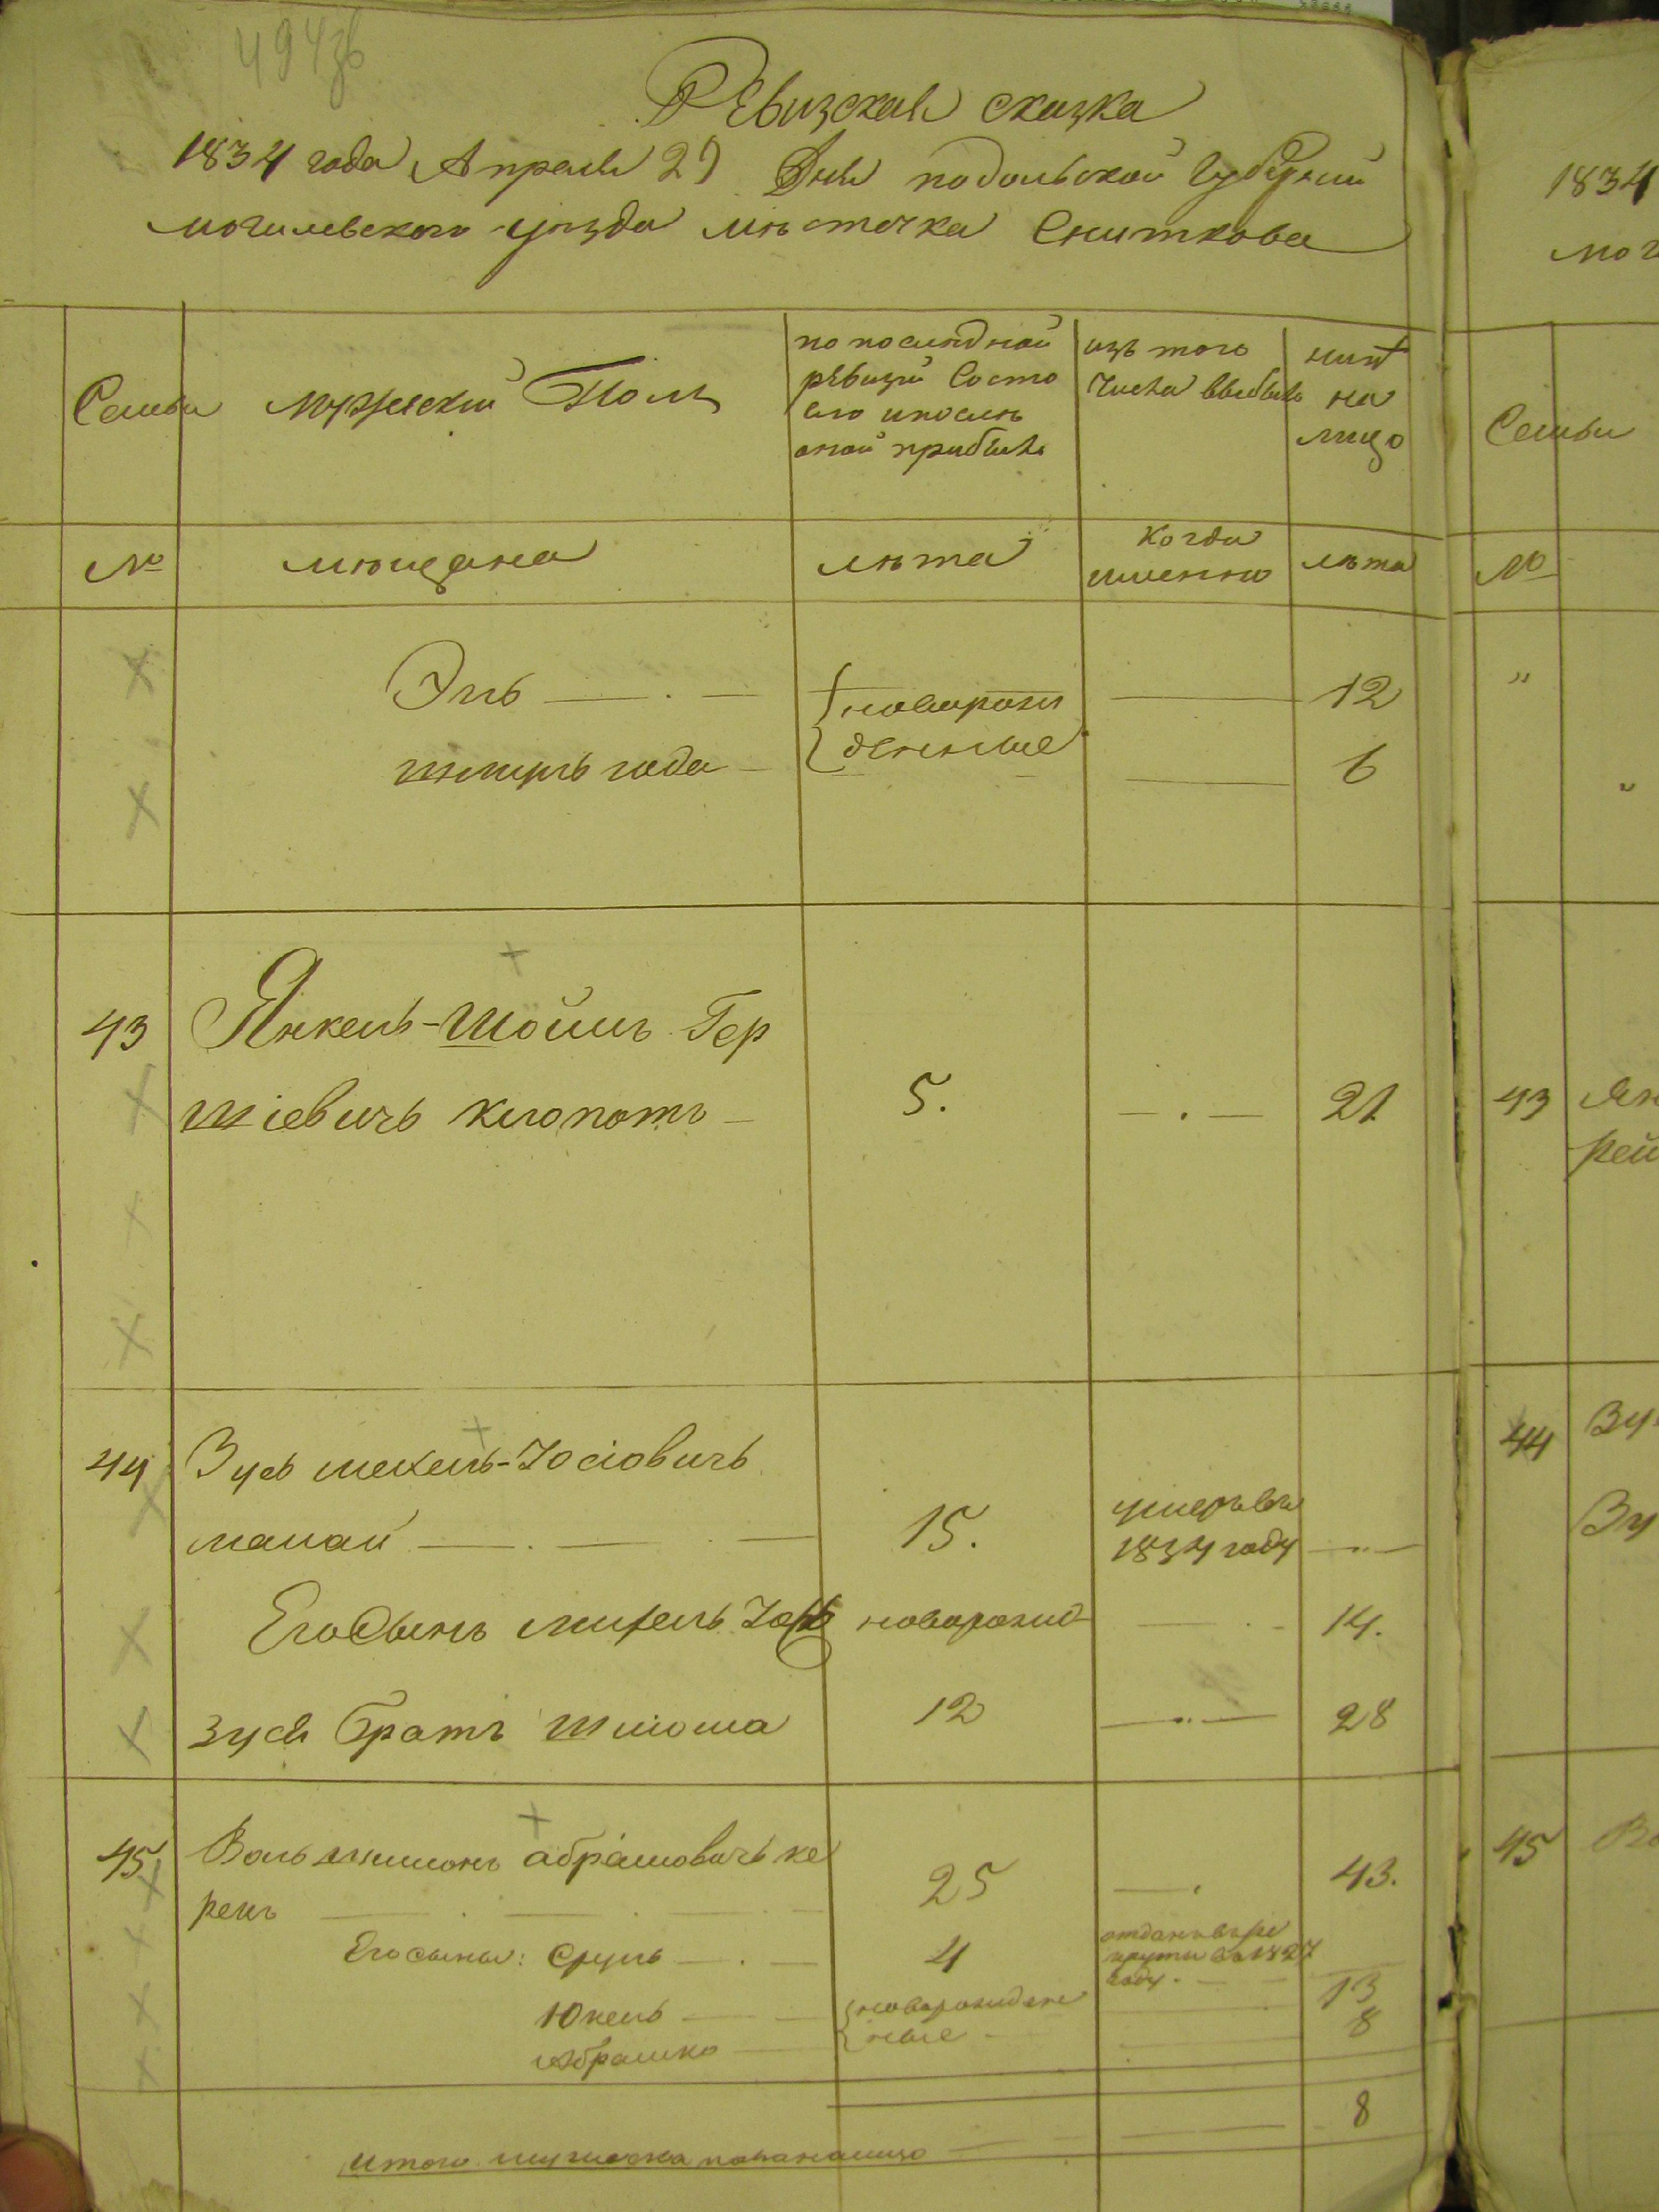 Ревизская сказка
1834 года Апреля 27 Дня подольской Губерний
могилевского уезда мѣстечка Сниткова
Семьи
мужеский Полъ
по последней
ревизий Состо
яло и после
оной прибыло
изъ того
числа выбыло
ныне
на
лицо
№
мещана
лѣта
когда
именно
лѣта
Эль
новорож
12
денные
6
43
Янкель-Шоимъ Гер
шіевичъ клопотъ
5.
21
44
Зусь мехель-Іосіовичъ
мамай
15.
умеръ въ
1834 году
Его Сынъ
новорожд
14.
Зуся братъ Шліома
12
28
45
абрамовичъ ке
ренъ
25
43.
Его сыны: Сруль
4
отданъ въ ре
круты въ 1827
году.
Юкель
новорожден
13
Абрамко
ные
8
итого мужеска пола налицо
8
1834
мог
Семьи
№
43
Ян
рей
44
Зу
Зу
45
Во